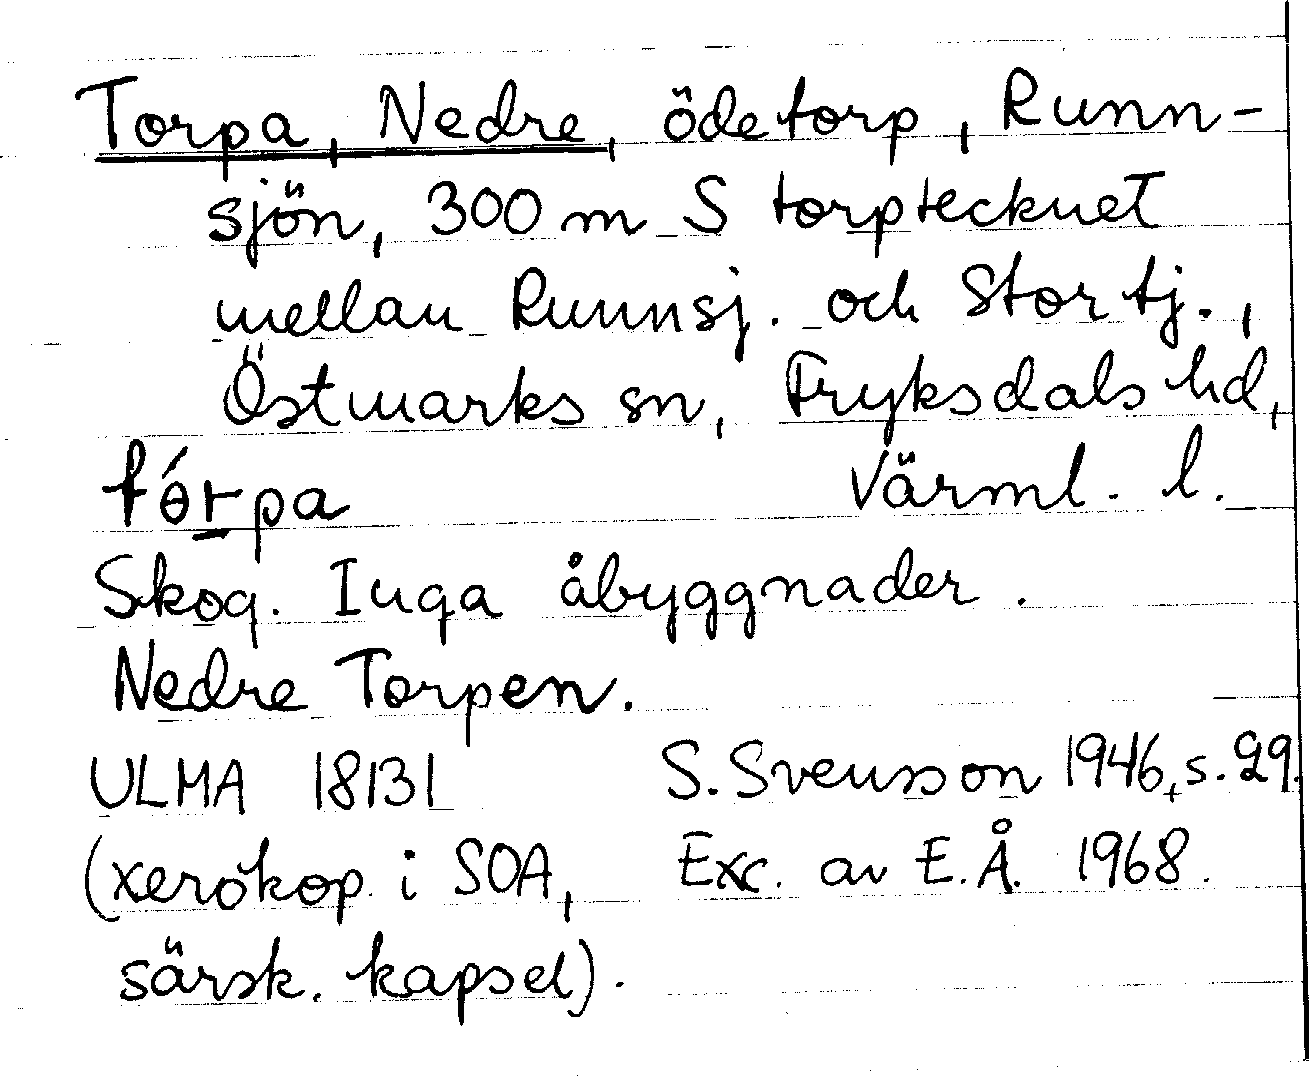 Torpa, Nedre, ödetorp, Runn-
sjön, 300 m S torptecknet
mellan Runnsj. och Stortj.,
Östmarks sn, Fryksdals hd,
tórpa Värml. l.
Skog. Inga åbyggnader.
Nedre Torpen.
ULMA 18131 S. Svensson 1946, s. 29.
(xerokop. i SOA, Exc. av E.Å. 1968.
särsk. kapsel).